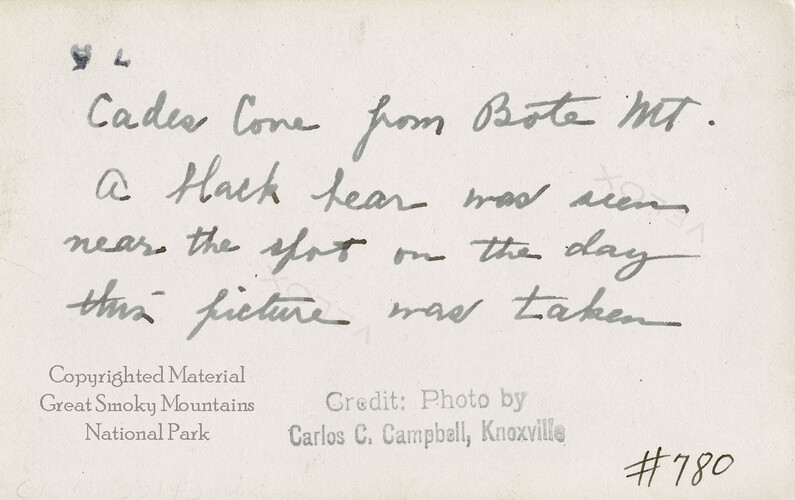 Cades Cove from Bote Mt.
A black bear was seen
near the spot on the day
this picture was taken
Copyrighted Material
Great Smoky Mountains
National Park
Credit: Photo by
Carlos C. Campbell, Knoxville
#780
VELOX
VELOX